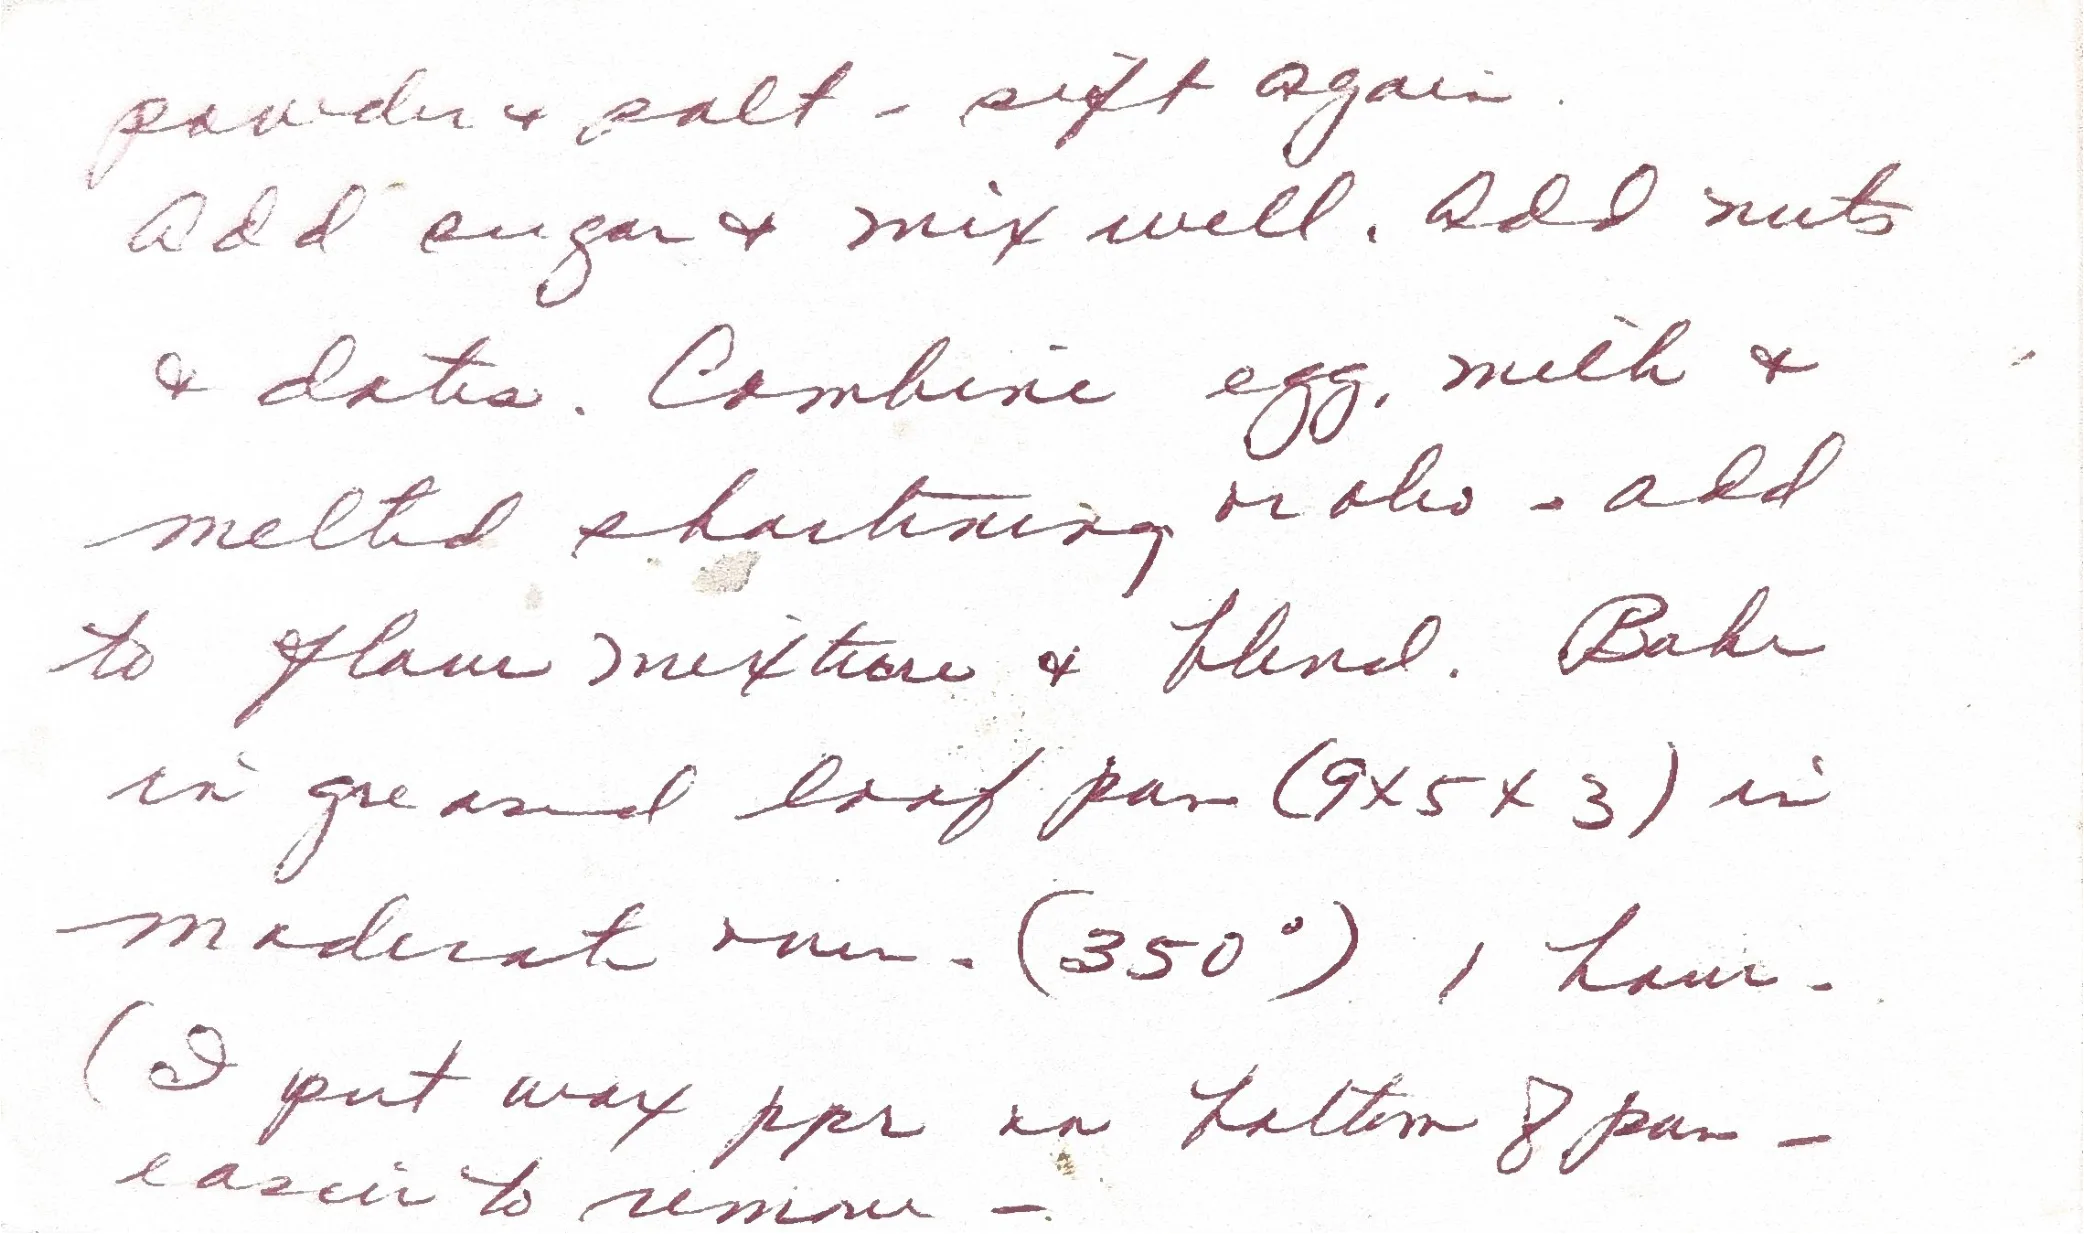 powder & salt - sift again.
Add sugar & mix well. Add nuts
& dates. Combine egg, milk &
melted shortening or oleo - add
to flour mixture & blend. Bake
in greased loaf pan (9x5x3) in
moderate oven. (350°) 1 hour.
(I put wax ppr on bottom of pan -
easier to remove -